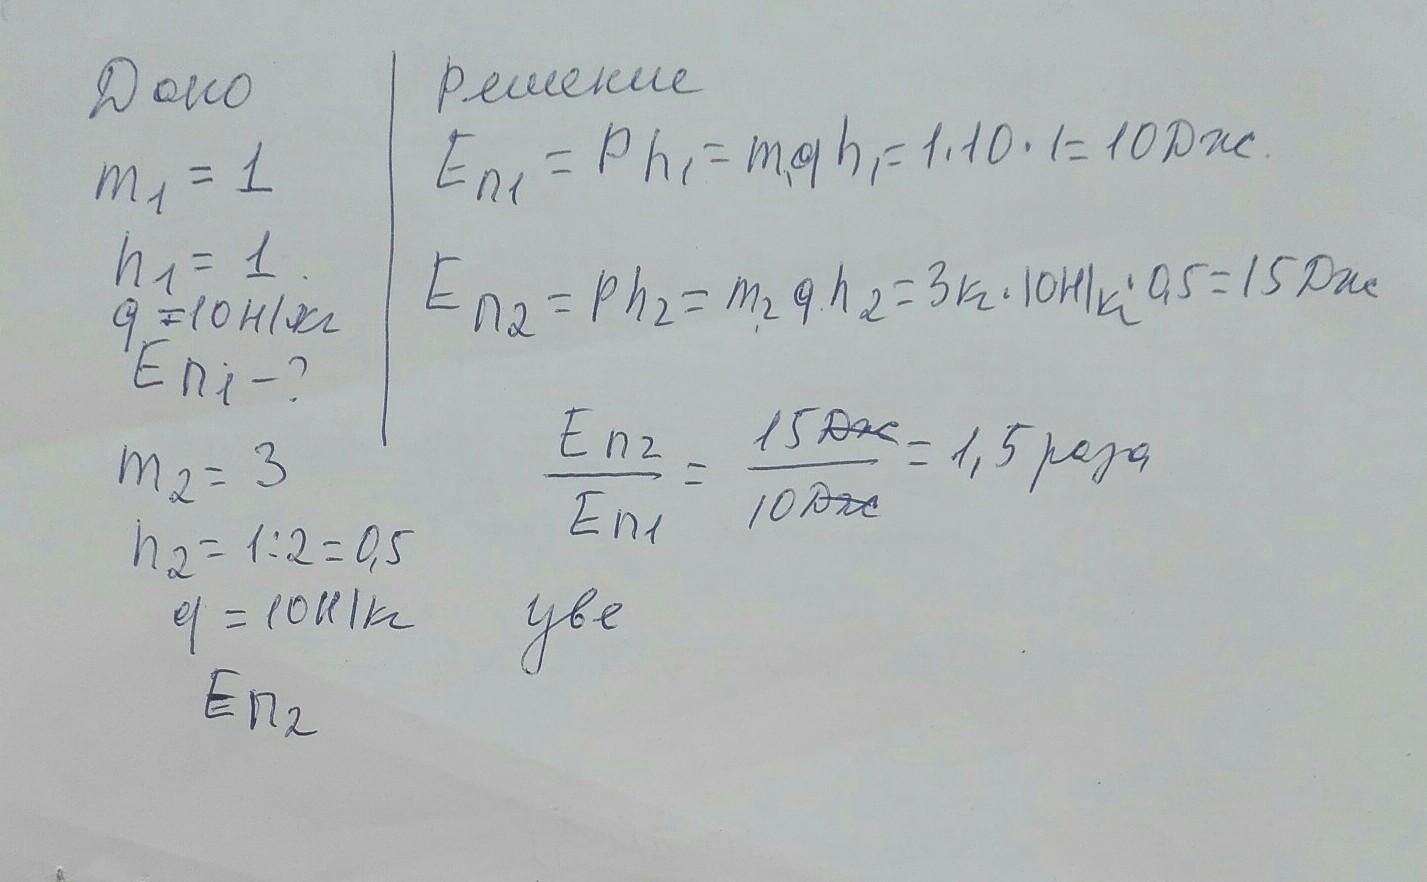 Дано
m₁ = 1
h₁ = 1.
g = 10 Н/кг
Eп₁ - ?
m₂ = 3
h₂ = 1:2 = 0,5
g = 10 Н/кг
Eп₂
Решение
Eп₁ = Ph₁ = m₁gh₁ = 1·10·1 = 10 Дж.
Eп₂ = Ph₂ = m₂gh₂ = 3кг·10Н/кг·0,5 = 15 Дж
Eп₂/Eп₁ = 15 Дж/10 Дж = 1,5 раза
уве